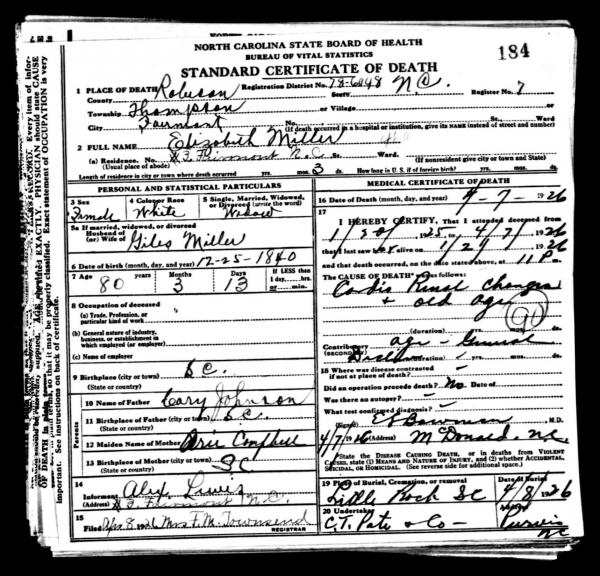 NORTH CAROLINA STATE BOARD OF HEALTH
BUREAU OF VITAL STATISTICS
184
STANDARD CERTIFICATE OF DEATH
1 PLACE OF DEATH Robeson Registration District No. 78-6448 N.C.
County State Register No. 7
Township Thompson or Village or
City Fairmont No. St. Ward
(If death occurred in a hospital or institution, give its NAME instead of street and number)
2 FULL NAME Elizabeth Miller
(a) Residence. No. Fairmont N.C. St. Ward.
(Usual place of abode) (If nonresident give city or town and State)
Length of residence in city or town where death occurred yrs. mos. 3 ds. How long in U. S. if of foreign birth? yrs. mos. ds.
PERSONAL AND STATISTICAL PARTICULARS
3 Sex 4 Color or Race 5 Single, Married, Widowed, or Divorced (write the word)
Female White Widow
5a If married, widowed, or divorced
Husband of
(or) Wife of Giles Miller
6 Date of birth (month, day, and year) 12-25-1840
7 Age Months Days If LESS than
80 3 13 1 day, hrs.
or min.
8 Occupation of deceased
(a) Trade, Profession, or
particular kind of work
(b) General nature of industry,
business, or establishment in
which employed (or employer)
(c) Name of employer
9 Birthplace (city or town) S.C.
(State or country)
Parents
10 Name of Father Cary Johnson
11 Birthplace of Father (city or town) S.C.
(State or country)
12 Maiden Name of Mother
13 Birthplace of Mother (city or town) SC
(State or country)
14
Informant Alex Lewis
(Address) Fairmont N.C.
15
Filed Apr 8 1926 Mrs F. M. Townsend
REGISTRAR
MEDICAL CERTIFICATE OF DEATH
16 Date of Death (month, day, and year) 4-7-1926
17
I HEREBY CERTIFY, That I attended deceased from
1925 to 4/7/1926
that I last saw her alive on 1926
and that death occurred, on the date stated above, at 11 P m.
The CAUSE OF DEATH* was as follows:
Cardio Renal changes
+ old age
90
(duration) yrs. mos. ds.
Contributory age - General
(SECONDARY)
(duration) yrs. mos. ds.
18 Where was disease contracted
if not at place of death?
Did an operation precede death? No. Date of
Was there an autopsy?
What test confirmed diagnosis?
(Signed) Bowman, M.D.
4/7/1926 (Address) McDonald, NC
*State the DISEASE CAUSING DEATH, or in deaths from VIOLENT
CAUSES, state (1) MEANS AND NATURE OF INJURY, and (2) whether ACCIDENTAL,
SUICIDAL, or HOMICIDAL. (See reverse side for additional space.)
19 Place of Burial, Cremation, or removal Date of Burial
Little Rock SC 4/8 1926
20 Undertaker
C.T. Pate & Co - Purvis
NC